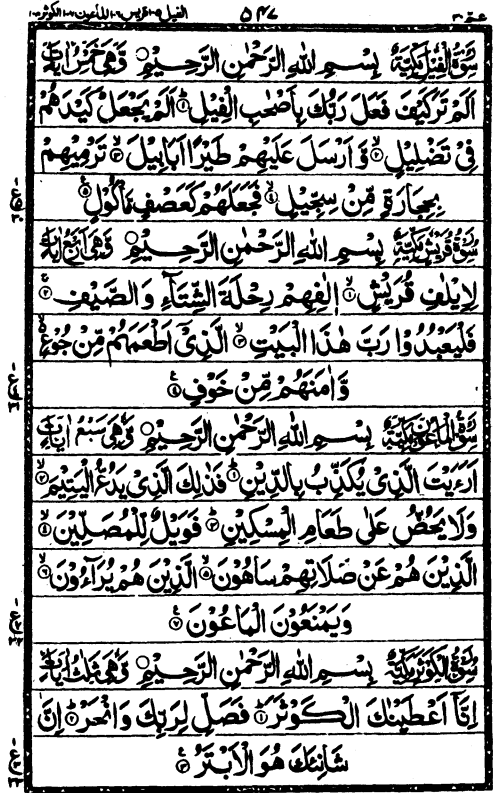 عم ۳۰ ۵۴۷ الفیل ۱۰۵ قریش ۱۰۶ الماعون ۱۰۷ الکوثر ۱۰۸
سُوْرَةُ الْفِيْلِ مَكِّيَّةٌ بِسْمِ اللهِ الرَّحْمٰنِ الرَّحِيْمِ وَّهِيَ خَمْسُ اٰيَاتٍ
اَلَمْ تَرَ كَيْفَ فَعَلَ رَبُّكَ بِاَصْحٰبِ الْفِيْلِ ۱ اَلَمْ يَجْعَلْ كَيْدَهُمْ
فِيْ تَضْلِيْلٍ ۲ وَّ اَرْسَلَ عَلَيْهِمْ طَيْرًا اَبَابِيْلَ ۳ تَرْمِيْهِمْ
بِحِجَارَةٍ مِّنْ سِجِّيْلٍ ۴ فَجَعَلَهُمْ كَعَصْفٍ مَّاْكُوْلٍ ۵
سُوْرَةُ قُرَيْشٍ مَكِّيَّةٌ بِسْمِ اللهِ الرَّحْمٰنِ الرَّحِيْمِ وَّهِيَ اَرْبَعُ اٰيَاتٍ
لِاِيْلٰفِ قُرَيْشٍ ۱ اٖلٰفِهِمْ رِحْلَةَ الشِّتَآءِ وَالصَّيْفِ ۲
فَلْيَعْبُدُوْا رَبَّ هٰذَا الْبَيْتِ ۳ الَّذِيْٓ اَطْعَمَهُمْ مِّنْ جُوْعٍ
وَّاٰمَنَهُمْ مِّنْ خَوْفٍ ۴
سُوْرَةُ الْمَاعُوْنِ مَكِّيَّةٌ بِسْمِ اللهِ الرَّحْمٰنِ الرَّحِيْمِ وَّهِيَ سَبْعُ اٰيَاتٍ
اَرَءَيْتَ الَّذِيْ يُكَذِّبُ بِالدِّيْنِ ۱ فَذٰلِكَ الَّذِيْ يَدُعُّ الْيَتِيْمَ ۲
وَلَا يَحُضُّ عَلٰى طَعَامِ الْمِسْكِيْنِ ۳ فَوَيْلٌ لِّلْمُصَلِّيْنَ ۴
الَّذِيْنَ هُمْ عَنْ صَلَاتِهِمْ سَاهُوْنَ ۵ الَّذِيْنَ هُمْ يُرَآءُوْنَ ۶
وَيَمْنَعُوْنَ الْمَاعُوْنَ ۷
سُوْرَةُ الْكَوْثَرِ مَكِّيَّةٌ بِسْمِ اللهِ الرَّحْمٰنِ الرَّحِيْمِ وَّهِيَ ثَلٰثُ اٰيَاتٍ
اِنَّآ اَعْطَيْنٰكَ الْكَوْثَرَ ۱ فَصَلِّ لِرَبِّكَ وَانْحَرْ ۲ اِنَّ
شَانِئَكَ هُوَ الْاَبْتَرُ ۳